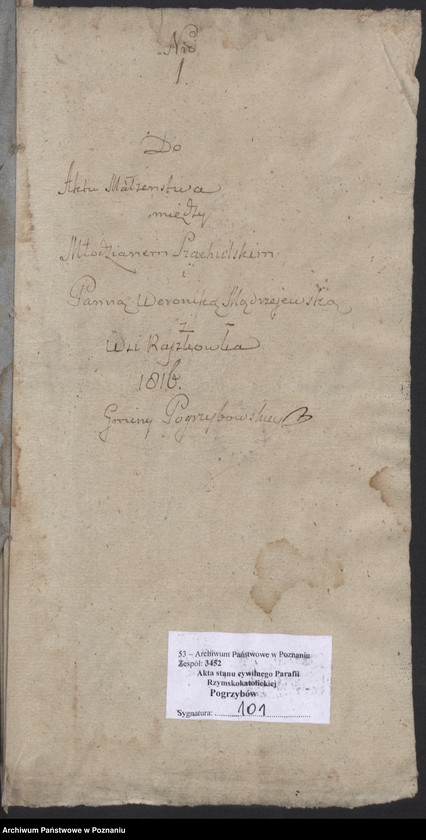 Nro
1.
Do
Aktu Małżenstwa
między
Młodzianem
i
Panną Weroniką Mądrzejewską
z
Wsi Raszkowka
1816.
Gminy Pogrzybowskiey
53 – Archiwum Państwowe w Poznaniu
Zespół: 3452
Akta stanu cywilnego Parafii
Rzymskokatolickiej
Pogrzybów
Sygnatura: 101
Archiwum Państwowe w Poznaniu
Archiwum Państwowe w Poznaniu